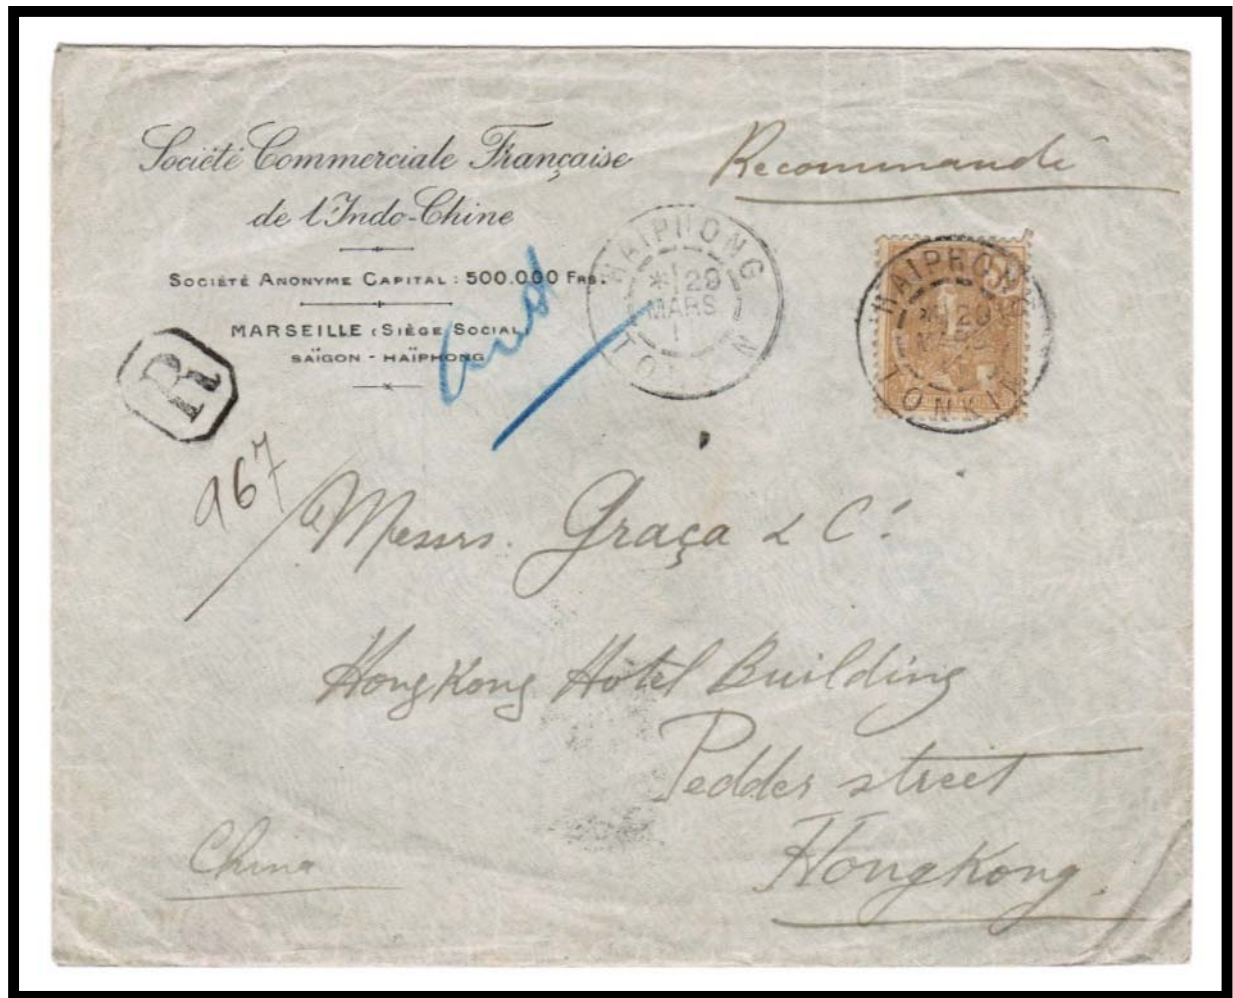 Société Commerciale Française
de l'Indo-Chine
SOCIÉTÉ ANONYME CAPITAL : 500.000 FRS.
MARSEILLE (SIÈGE SOCIAL)
SAÏGON - HAÏPHONG
Recommandé
HAIPHONG
* 29
MARS
TONKIN
HAIPHONG
* 29
MARS
TONKIN
R
967
Messrs. Graça & Cº
HongKong Hôtel Building
Pedder street
HongKong.
China